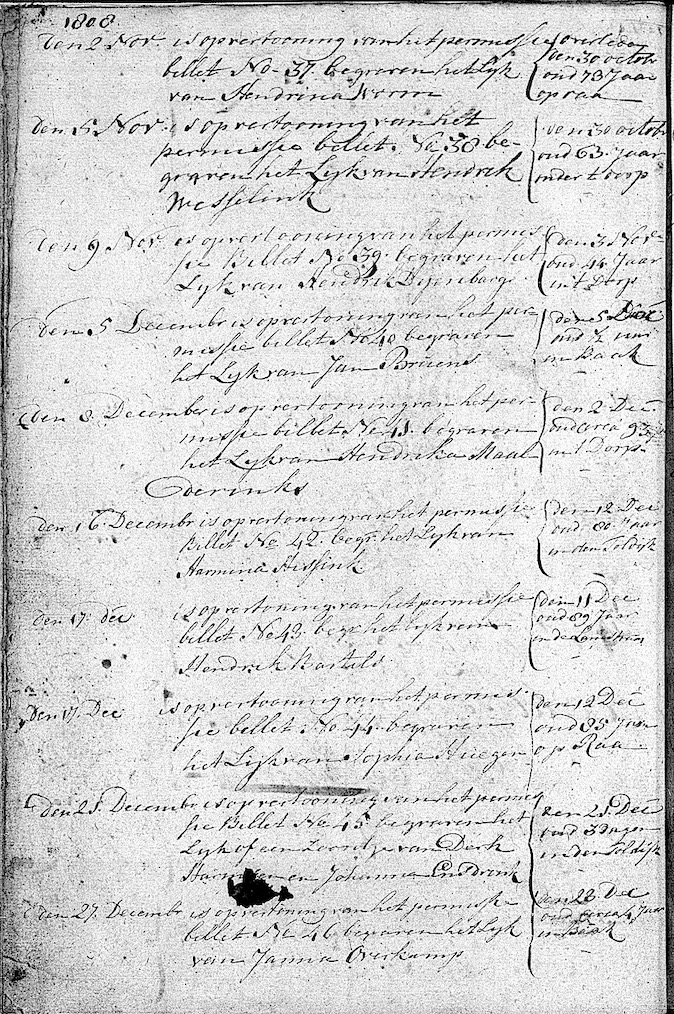 1808
den 2 Nov. is op vertooning van het permissie overleden
billet No. 37. begraven het Lyk den 30 octob
van Hendrina oud 78 Jaar
op raa
den 5 Nov. is op vertooning van het den 30 octob
permissie billet. No 38 be- oud 63. Jaar
graven het Lyk van Hendrik
Wesselink
den 9 Nov. is op vertooning van het permis den 3 Nov
sie Billet No 39. begraven het oud 44 Jaar
Lyk van Hendrik in 't Dorp
den 5 Decembr is op vertooning van het per- den 5 Dec
missie billet No 40 begraven oud ½ uur
het Lyk van Jan Bruens in Baak
den 8. December is op vertooning van het per- den 2 Dec
missie billet No 41. begraven oud circa 93
het Lyk van Hendrika Maal in 't Dorp
derinks
den 16 Decembr is op vertoning van het permissie den 12 Dec
Billet No 42. begr: het Lyk van oud 80 Jaar
Harmina Hissink in den Toldijk
den 17. dec is op vertoning van het permissie den 11 Dec
billet No 43. begr: het Lyk van oud 89 Jaar
Hendrik Bartels in de
den 17. Dec is op vertooning van het permis- den 12 Dec
sie billet No 44. begraven oud 85 Jaar
het Lyk van Sophia op Raa
den 25. Decembr is op vertooning van het permis den 25. Dec
sie Billet No 45 begraven het oud 3 Dagen
Lyk of een Zoontje van Derk in den Toldijk
en Johanna
den 27. Decembr is op vertooning van het permissie den 23 Dec
billet No 46 begraven het Lyk oud circa 4 Jaar
van Janna Overkamp in Baak